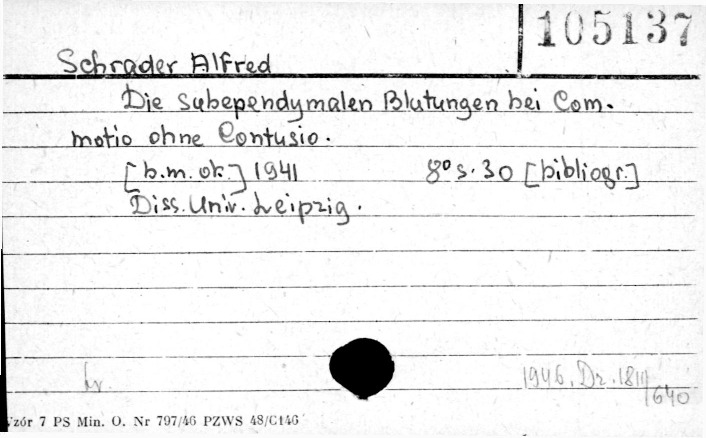 105137
Schrader Alfred
Die subependymalen Blutungen bei Com-
motio ohne Contusio.
[b.m.ok.] 1941 8° s. 30 [bibliogr.]
Diss. Univ. Leipzig.
br.
1946. Dr. 1811/640
Wzór 7 PS Min. O. Nr 797/46 PZWS 48/C146